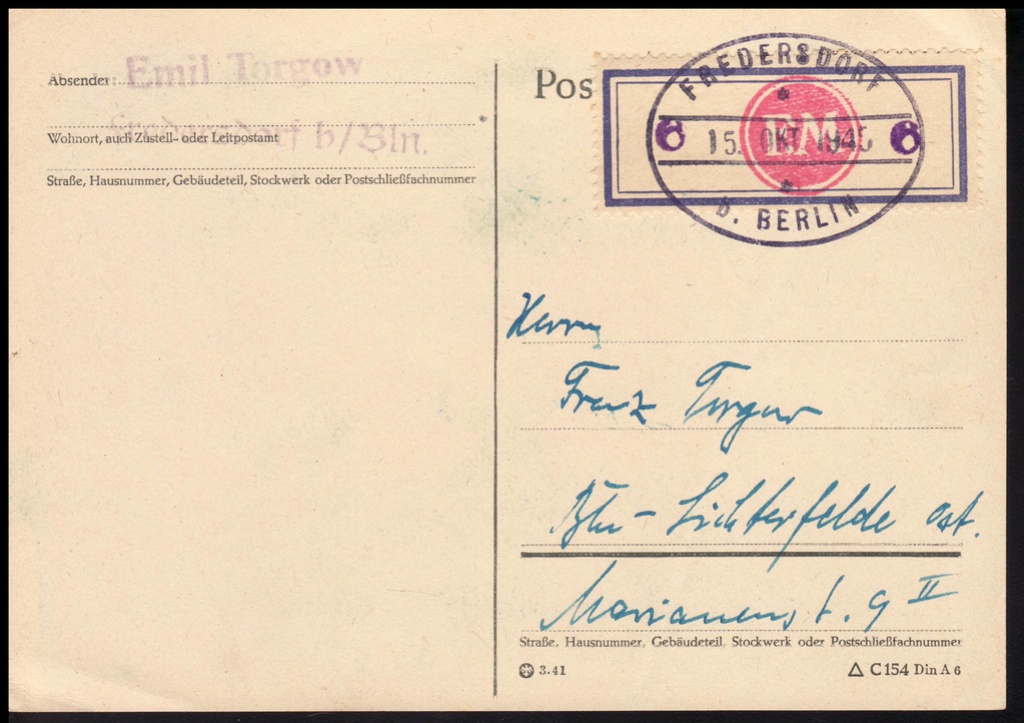 Absender: Emil Torgow
Fredersdorf b/Bln.
Wohnort, auch Zustell- oder Leitpostamt
Straße, Hausnummer, Gebäudeteil, Stockwerk oder Postschließfachnummer
Pos
FREDERSDORF
6 15. OKT. 1945 6
b. BERLIN
Herrn
Franz Torgow
Bln-Lichterfelde Ost.
Marianenst. 9 II
Straße, Hausnummer, Gebäudeteil, Stockwerk oder Postschließfachnummer
3.41
C 154 Din A 6